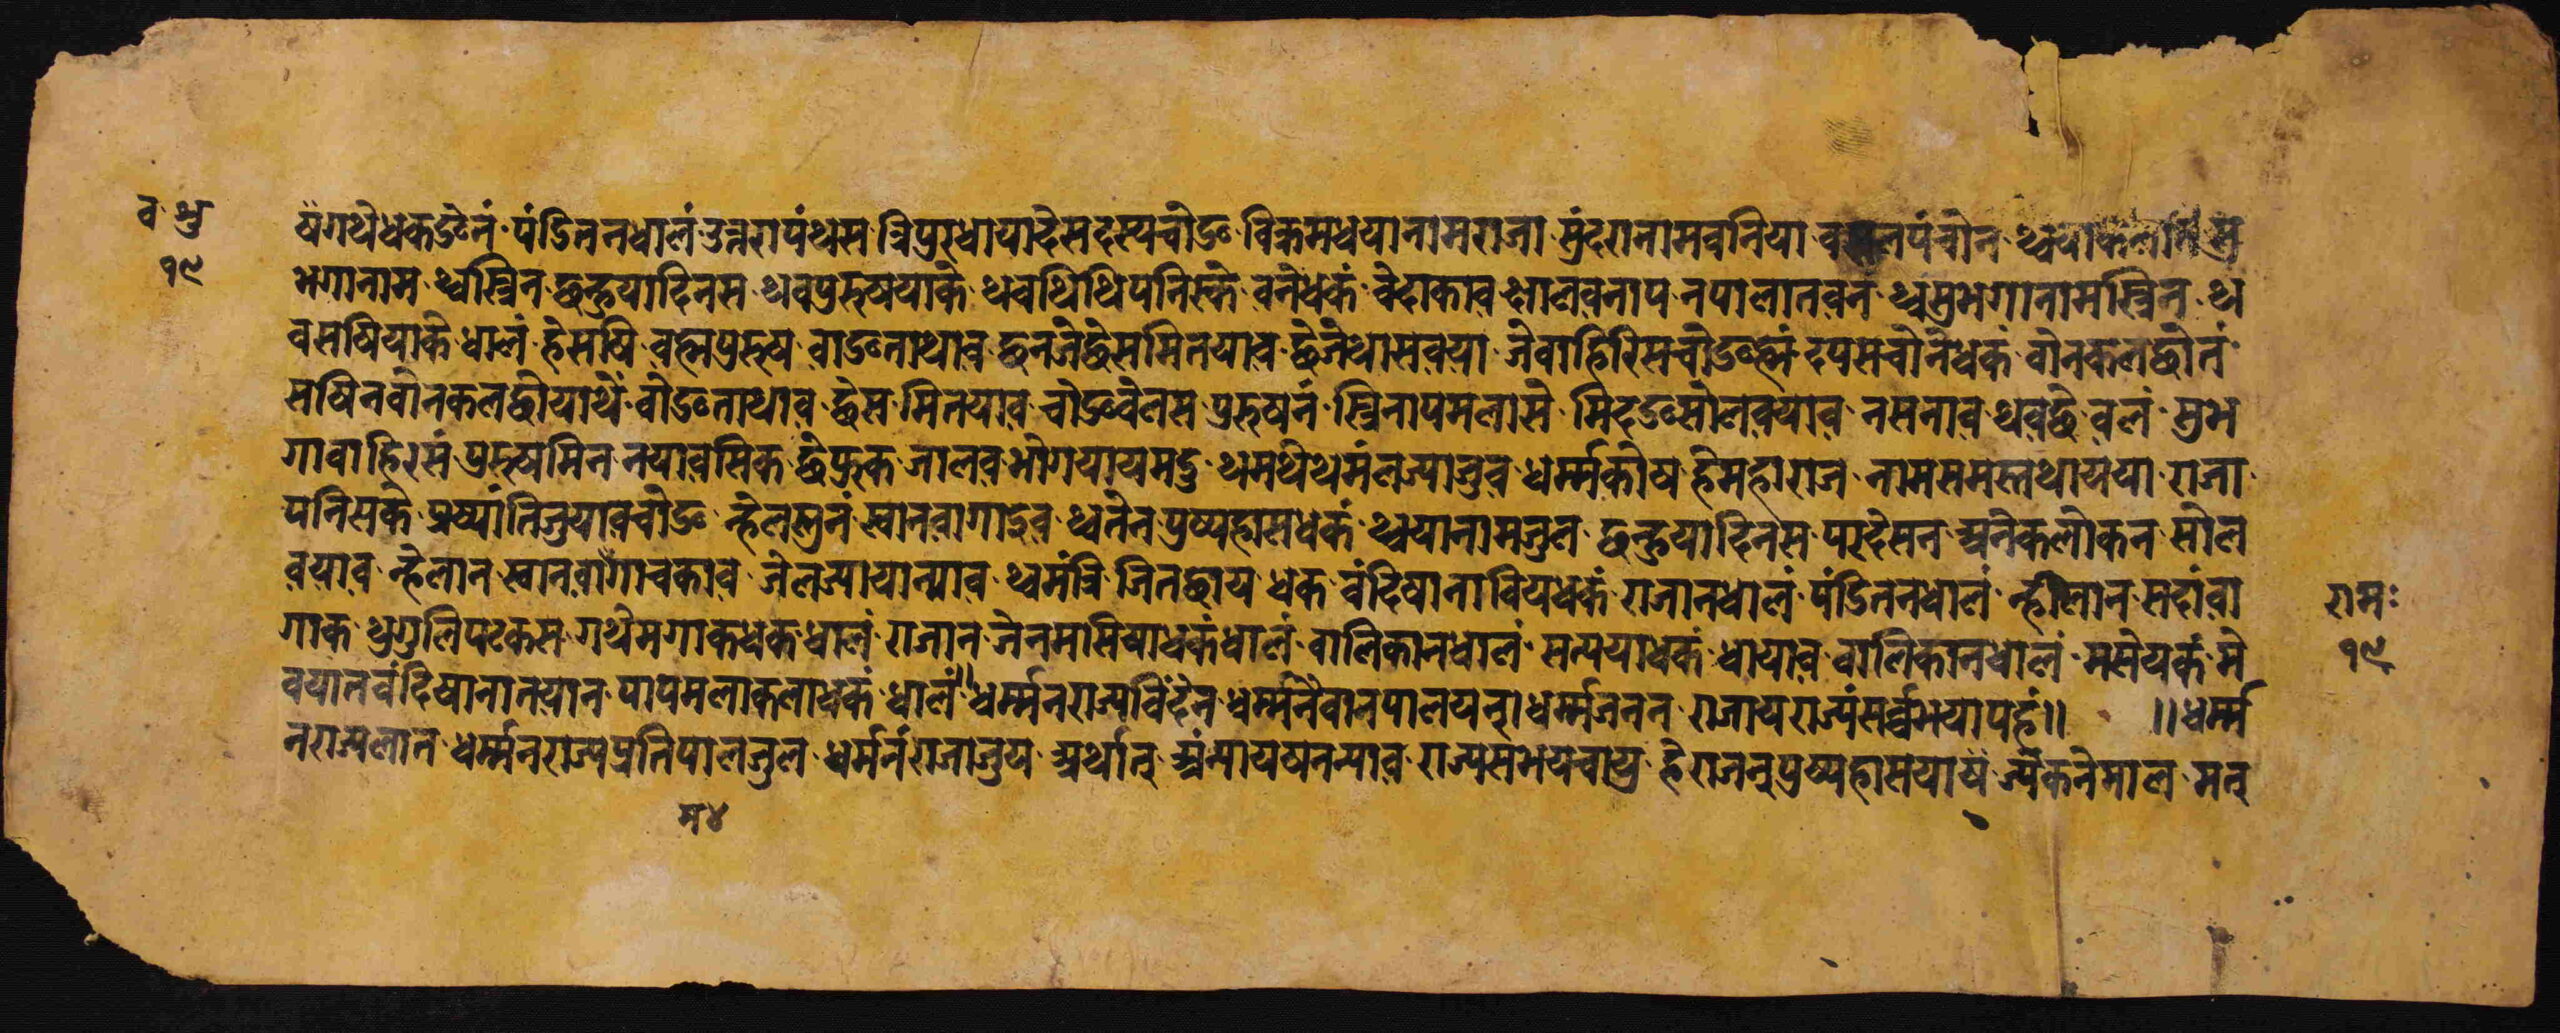 व भु
१९
षगथेधकङेनं पंडितनधालं उत्तरापंथस त्रिपुरधायादेसदस्यचोङ विक्रमधयानामराजा सुंदरानामवनिया व लपंचोन थ्वयाकलात सु
भगानाम थ्वस्त्रिन छन्हुयादिनस थवपुरुषयाके थवथिथिपनिस्के वनेधकं वेदाकाव झालवनाप नपालातवन थ्वसुभगानामस्त्रिन थ
वसषियाके धालं हेसषि वह्मपुरुष वाङनाथाव छनजेछेसमितयाव छेजेथासवया जेवाहिरिसचोङह्मं दपसचोनेधकं वोनकलछोतं
सषिनवोनकलछोयाथें वोङनाथाव छेस मितयाव चोङवेलस पुरुषनं स्त्रिनापमलासे मिदङसोलवयाव नसनाव थवछे वलं सुभ
गावाहिरसं पुरुषमित नयावसिक छेफुक जालव भोगयायमदु थमथेथमंलज्याजुव धर्म्मकीष हेमहाराज नामसमस्तथायया राजा
पनिसके प्रष्यांतिजुयावचोङ न्हेलस्तुनं स्वानवागाइव थ्वतेन पुष्पहासधकं थ्वयानामजुल छन्हुयादिनस परदेसन अनेकलोकन सोल
वयाव न्हेलान स्वानवागाचकाव जेलज्यायान्याव थ्वमंत्रि जितछाय धक वंदिषानावियधकं राजानधालं पंडितनधालं न्हीलान सदांवा
गाक थुगुलिपटकस गथेमगाकधक धालं राजान जेनमासिषाधकंधालं वालिकानधालं सत्ययाधकं धायाव वालिकानधालं मसेयकं मे
वयातवंदिषानातयान पापमलाकलाधकं धालं धर्म्मनराज्यविंदेन धर्म्मनैवानपालयत्। धर्म्मजनन राजाय राज्यंसर्व्वभयापहं॥ ॥धर्म्म
नराज्यलात धर्म्मनराज्यप्रतिपालजुल धर्मनंराजाजुय अर्थात् अंन्यायषनन्याव राज्यसभयचायु हेराजन्पुष्पहासयाष ज्येंकनेमाल मन्
रामः
१९
म४